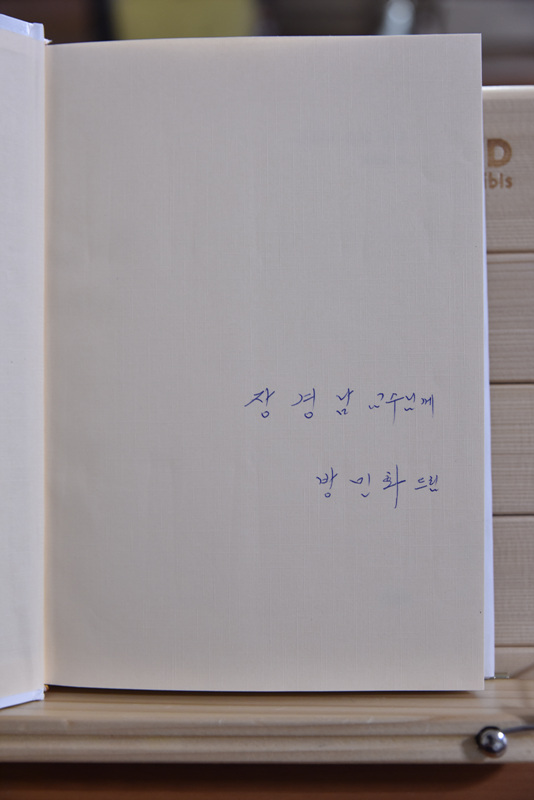 장 경 남 교수님께
방 민 화 드림
D
ibis